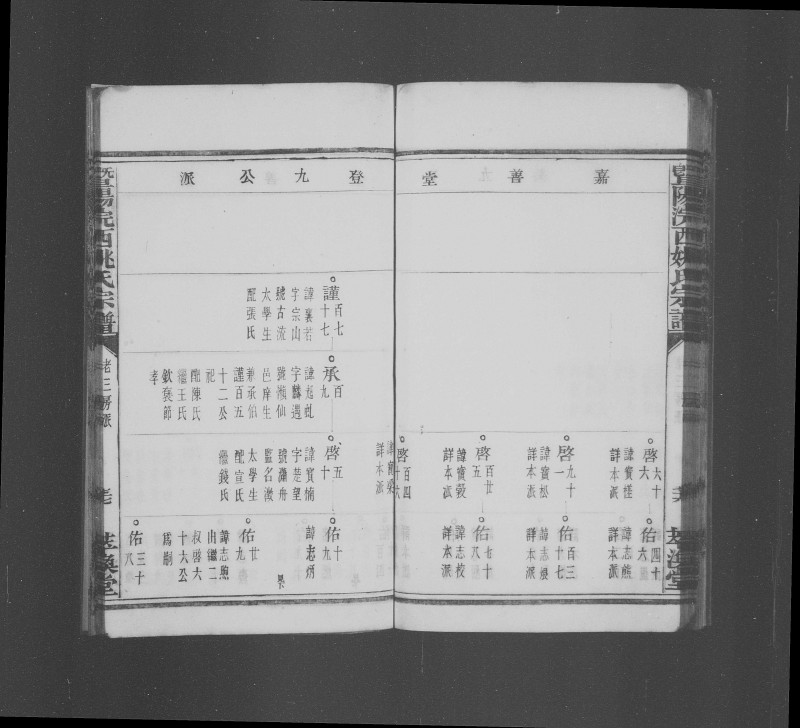 嘉善堂
登九公派
暨陽浣西姚氏宗譜
啓六
六十
諱寶
詳本派
佑六
四十
諱志熊
詳本派
啓一
九十
諱寶松
詳本派
佑
百三
十七
諱志
詳本派
啓五
百廿
諱寶穀
詳本派
佑八
七十
諱志校
詳本派
啓
百四
十六
諱寶
詳本派
謹
百七
十七
諱襄若
字宗山
號古
太學生
配張氏
承
百
九
諱
字麟遇
號瀕仙
邑庠生
兼承伯
謹百五
十二公
祀
配陳氏
繼王氏
欽褒節
孝
啓
五
十
諱寶
字楚望
號瀛舟
監名澂
太學生
配宣氏
繼錢氏
佑
十
九
諱志炳
佑
廿
九
諱志煦
由繼二
叔啓六
十六公
爲嗣
佑
三十
八
暨陽浣西姚氏宗譜
老三房派